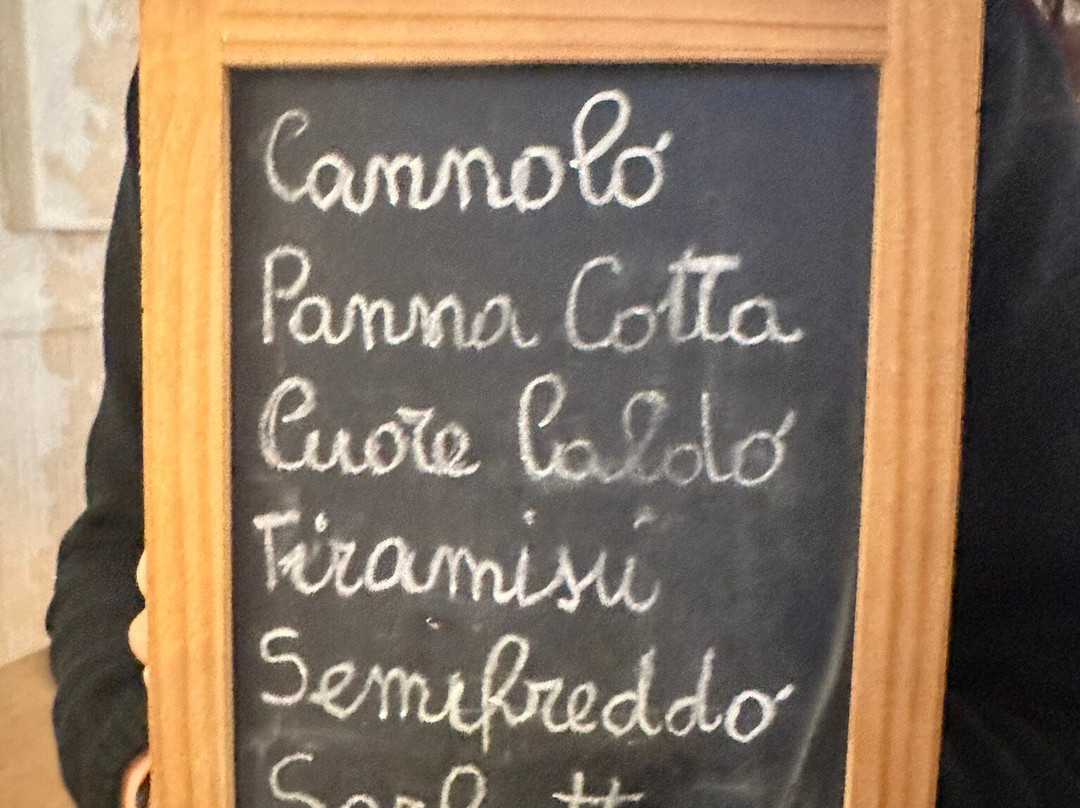 Cannolo
Panna Cotta
Cuore Caldo
Tiramisù
Semifreddo